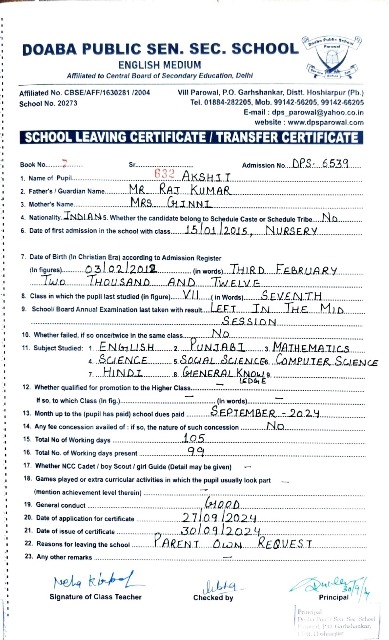 DOABA PUBLIC SEN. SEC. SCHOOL
ENGLISH MEDIUM
Affiliated to Central Board of Secondary Education, Delhi
Affiliated No. CBSE/AFF/1630281 /2004
School No. 20273
Vill Parowal, P.O. Garhshankar, Distt. Hoshiarpur (Pb.)
Tel. 01884-282205, Mob. 99142-56205, 99142-66205
E-mail : dps_parowal@yahoo.co.in
website : www.dpsparowal.com
SCHOOL LEAVING CERTIFICATE / TRANSFER CERTIFICATE
Book No. 7 Sr. 632 Admission No. DPS-6539
1. Name of Pupil AKSHIT
2. Father's / Guardian Name MR RAJ KUMAR
3. Mother's Name MRS GINNI
4. Nationality INDIAN 5. Whether the candidate belong to Schedule Caste or Schedule Tribe No
6. Date of first admission in the school with class 15/01/2015, NURSERY
7. Date of Birth (In Christian Era) according to Admission Register
(In figures) 03/02/2012 (in words) THIRD FEBRUARY
TWO THOUSAND AND TWELVE
8. Class in which the pupil last studied (in figure) VII (in Words) SEVENTH
9. School Board Annual Examination last taken with result LEFT IN THE MID
SESSION
10. Whether failed, if so once/twice in the same class No
11. Subject Studied : 1. ENGLISH 2. PUNJABI 3. MATHEMATICS
4. SCIENCE 5. SOCIAL SCIENCE 6. COMPUTER SCIENCE
7. HINDI 8. GENERAL KNOW 9.
LEDGE
12. Whether qualified for promotion to the Higher Class –
If so, to which Class (in fig.) – (in words) –
13. Month up to the (pupil has paid) school dues paid SEPTEMBER - 2024
14. Any fee concession availed of : if so, the nature of such concession No
15. Total No of Working days 105
16. Total No. of Working days present 99
17. Whether NCC Cadet / boy Scout / girl Guide (Detail may be given) –
18. Games played or extra curricular activities in which the pupil usually look part –
(mention achievement level therein) –
19. General conduct GOOD
20. Date of application for certificate 27/09/2024
21. Date of issue of certificate 30/09/2024
22. Reasons for leaving the school PARENT OWN REQUEST
23. Any other remarks –
Signature of Class Teacher Checked by Principal
Principal
Doaba Public Sen. Sec. School
Parowal, P.O. Garhshankar,